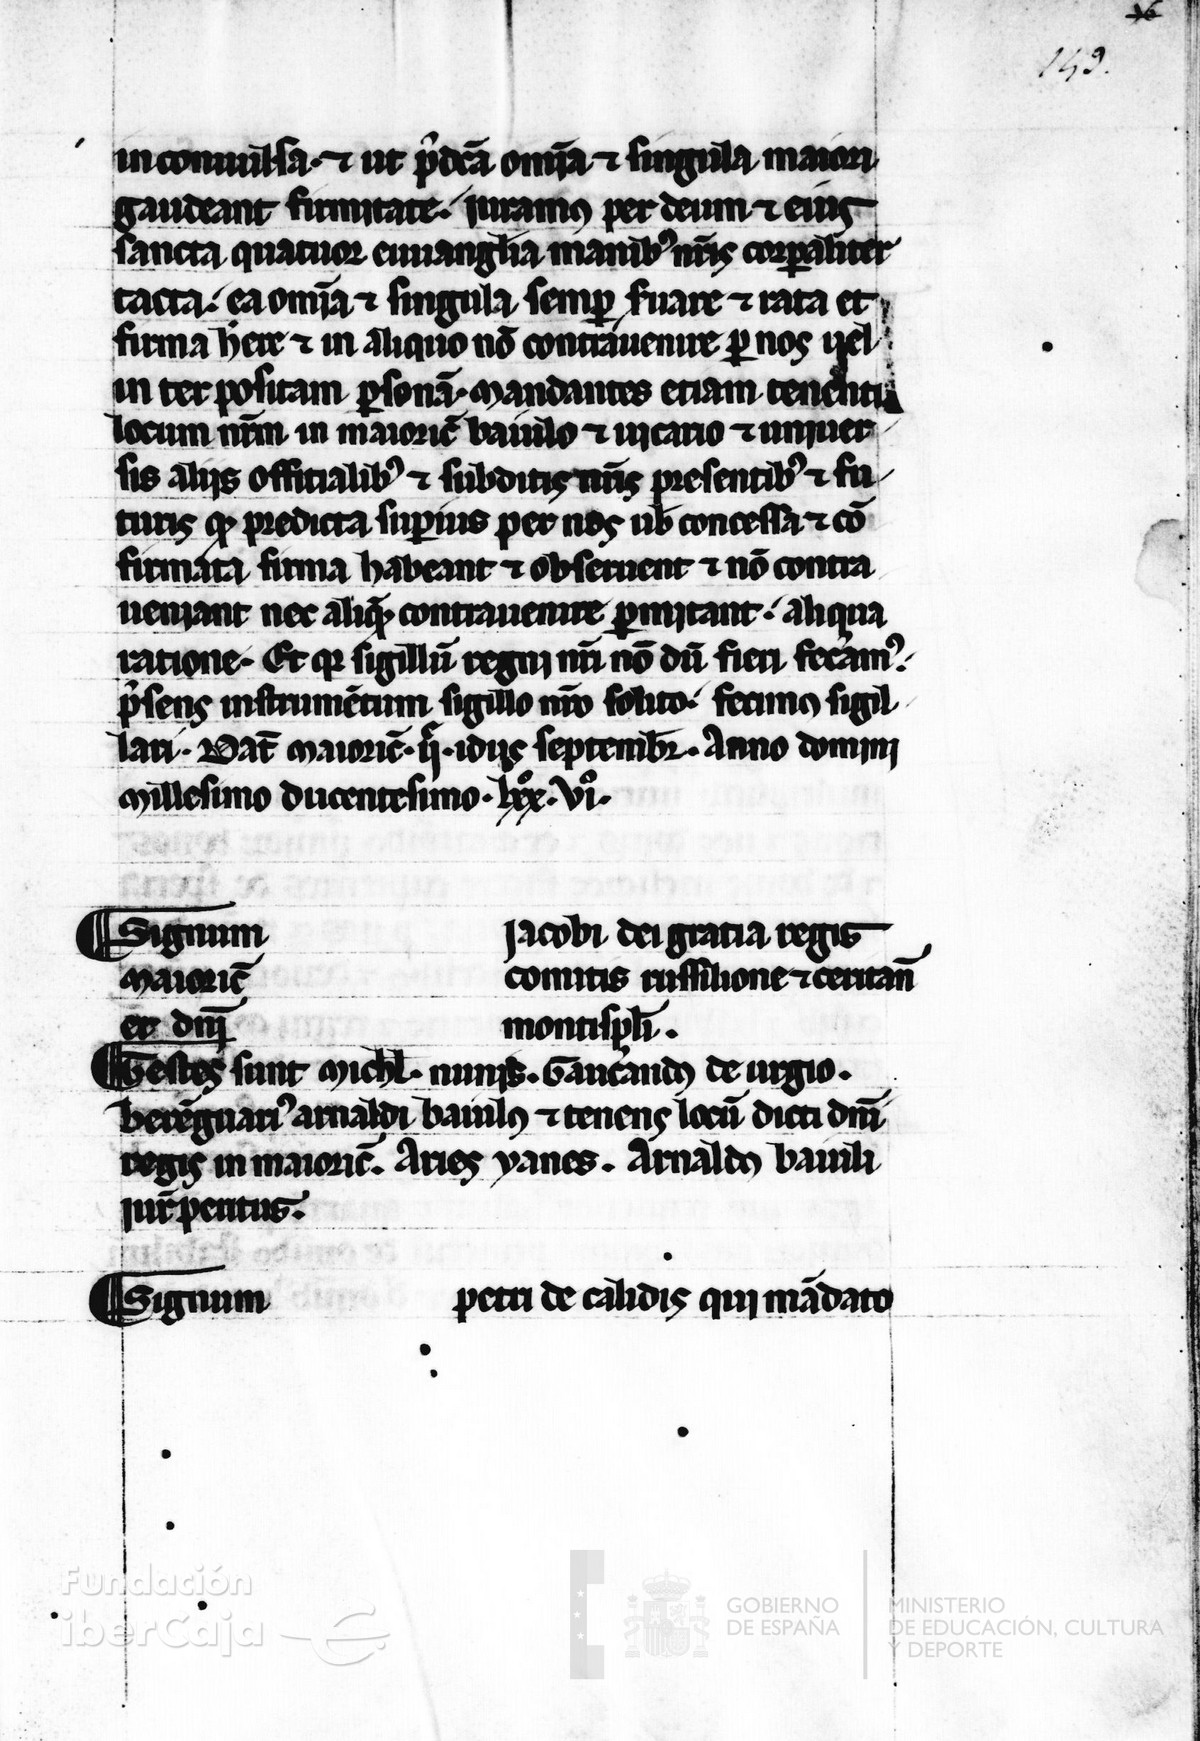 149.
in conuulsa· ⁊ ut p̾dc̄a om̄ia ⁊ singula maiori
gaudeant firmitate· Juramꝰ per deum ⁊ eius
sancta quatuor euuanglia manibꝰ nr̄is corꝑaliter
tacta· ea om̄ia ⁊ singula semꝑ s̾uare ⁊ rata et
firma h̄ere ⁊ in aliquo nō contrauenire ꝑ nos uel
in ter positam ꝑsonā· Mandantes etiam tenenti
locum nr̄m in maioric̄ baiulo ⁊ uicario ⁊ uniuer
sis alijs officialibꝰ ⁊ subditis nr̄is presentibꝰ ⁊ fu
turis ꝙ predicta suꝑius per nos uob̄ concessa ⁊ cō
firmata firma habeant ⁊ obseruent ⁊ nō contra
ueniant nec aliquē contrauenire ꝑmitant· aliqua
ratione· Et quia sigillū regni nr̄i nō dū fieri fec̾amꝰ·
p̾sens instrumētum sigillo nr̄o solito· fecimꝰ sigil
lari· Dat̄ Maioric̄· ij· idus septembr̄· Anno domini
Millesimo ducentesimo· lxxº· viº·
Signum Jacobi dei gratia regis
Maioric̄ comitis rossilione ⁊ ceritan̄
et dn̄i montispl̄i·
Testes sunt Michl̄· nunis· Gauc̾andꝰ de urgio·
berēguariꝰ arnaldi baiulꝰ ⁊ tenens locū dicti dn̄i
regis in maioric̄· Aries yanes· Arnaldꝰ baiuli
jur̄peritus·
Signum petri de calidis qui mādato
Fundación
iberCaja
GOBIERNO
DE ESPAÑA
MINISTERIO
DE EDUCACIÓN, CULTURA
Y DEPORTE